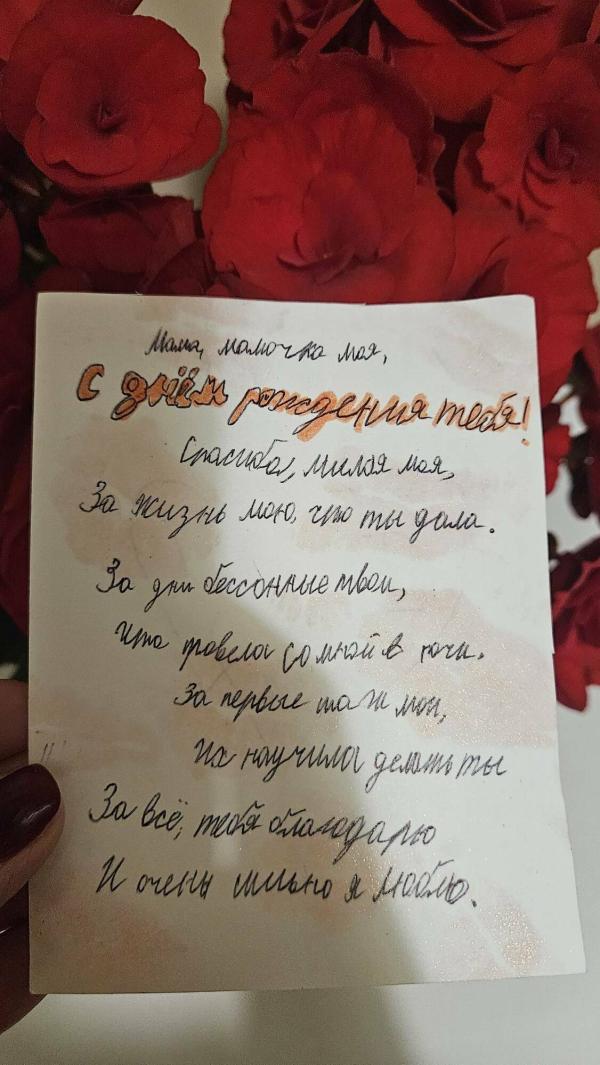 Мама, мамочка моя,
С днём рождения тебя!
Спасибо, милая моя,
За жизнь мою, что ты дала.
За дни бессонные твои,
Что провела со мной в ночи.
За первые шаги мои,
Их научила делать ты
За всё, тебя благодарю
И очень сильно я люблю.